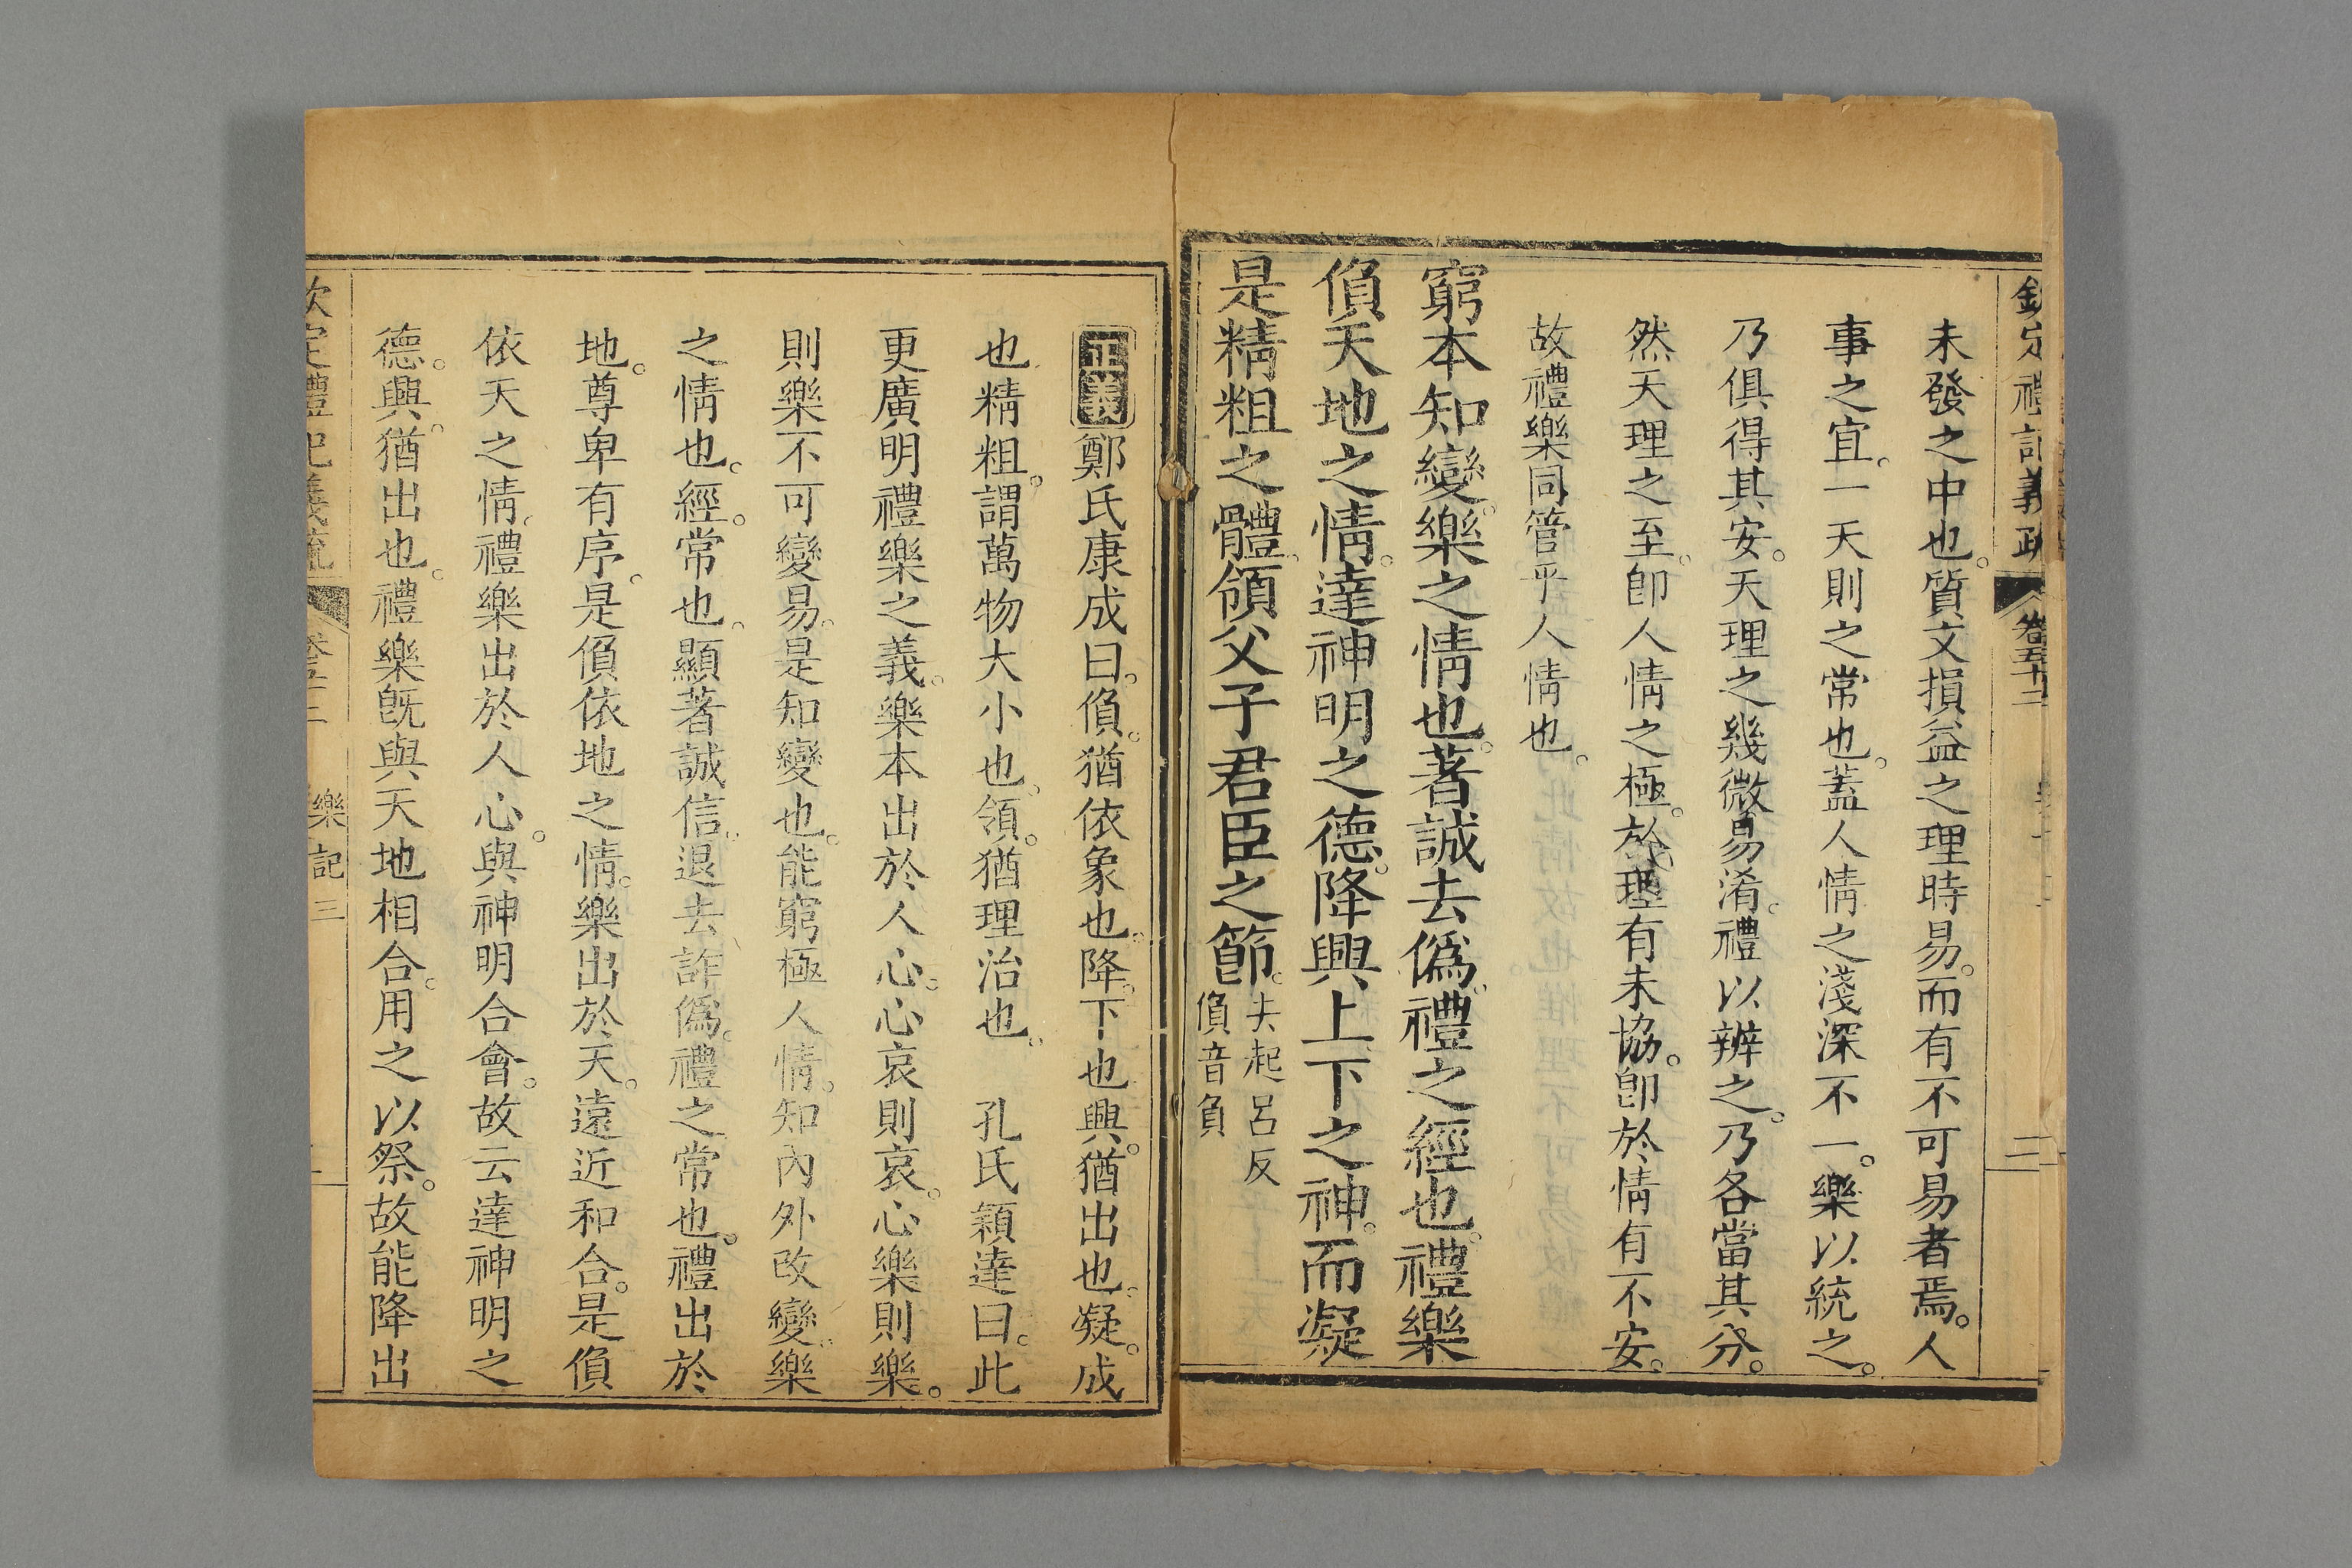 未發之中也。質文損益之理時易。而有不可易者焉。人
事之宜。一天則之常也。蓋人情之淺深不一。樂以統之。
乃俱得其安。天理之幾微易淆。禮以辨之。乃各當其分。
然天理之至。卽人情之極。於理有未協。卽於情有不安。
故禮樂同管乎人情也。
窮本知變。樂之情也。著誠去僞。禮之經也。禮樂
偩天地之情。達神明之德。降興上下之神。而凝
是精粗之體。領父子君臣之節。
夫起呂反
偩音負
正義鄭氏康成曰。偩。猶依象也。降。下也。興。猶出也。凝。成
也。精粗。謂萬物大小也。領。猶理治也。 孔氏穎達曰。此
更廣明禮樂之義。樂本出於人心。心哀則哀。心樂則樂。
則樂不可變易。是知變也。能窮極人情。知內外改變。樂
之情也。經。常也。顯著誠信。退去詐僞。禮之常也。禮出於
地。尊卑有序。是偩依地之情。樂出於天。遠近和合。是偩
依天之情。禮樂出於人心。與神明合會。故云達神明之
德。興。猶出也。禮樂旣與天地相合。用之以祭。故能降出
樂記三